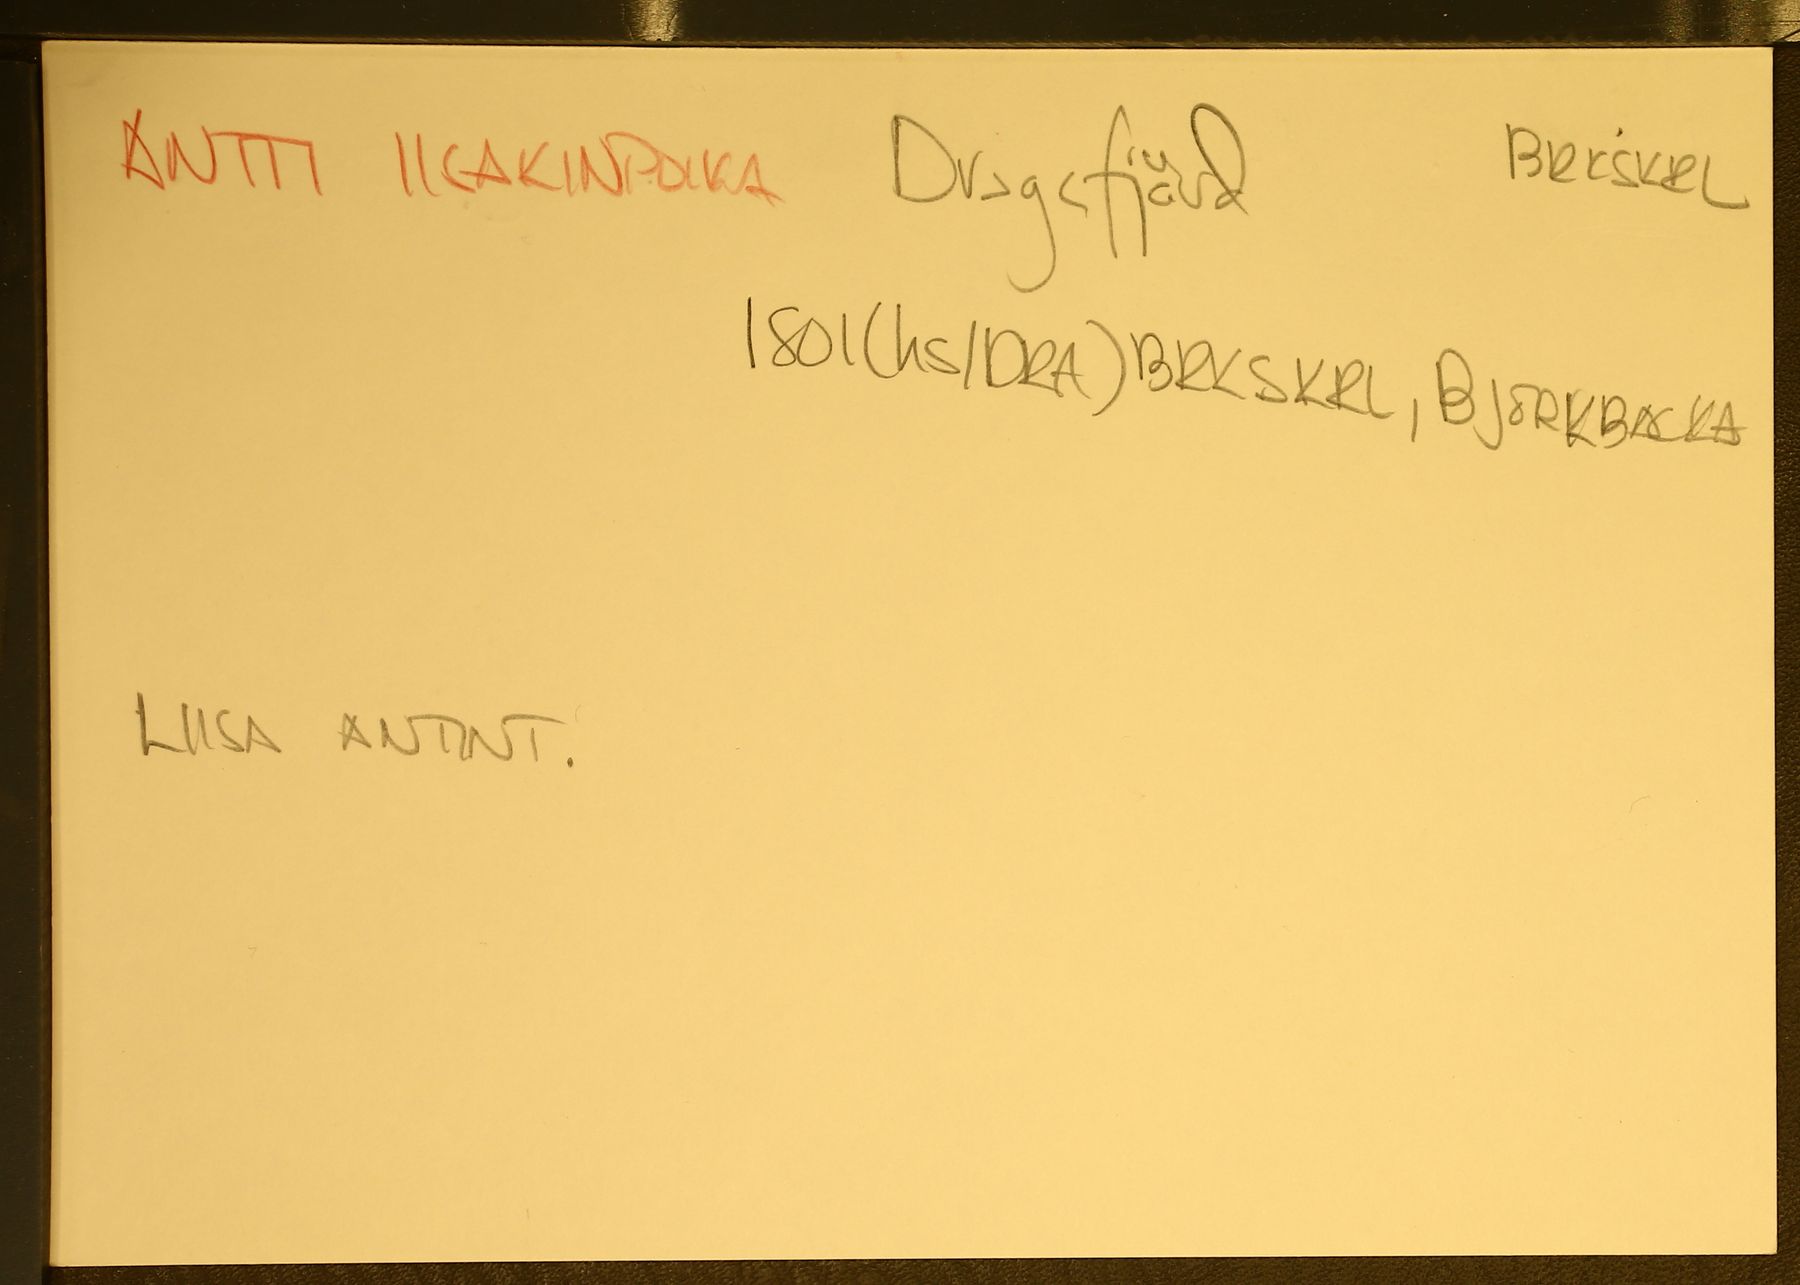 ANTTI IISAKINPOIKA Dragsfjärd BRKSKRL
1801(hs/DRA)BRKSKRL, BJÖRKBACKA
LIISA ANTINT.